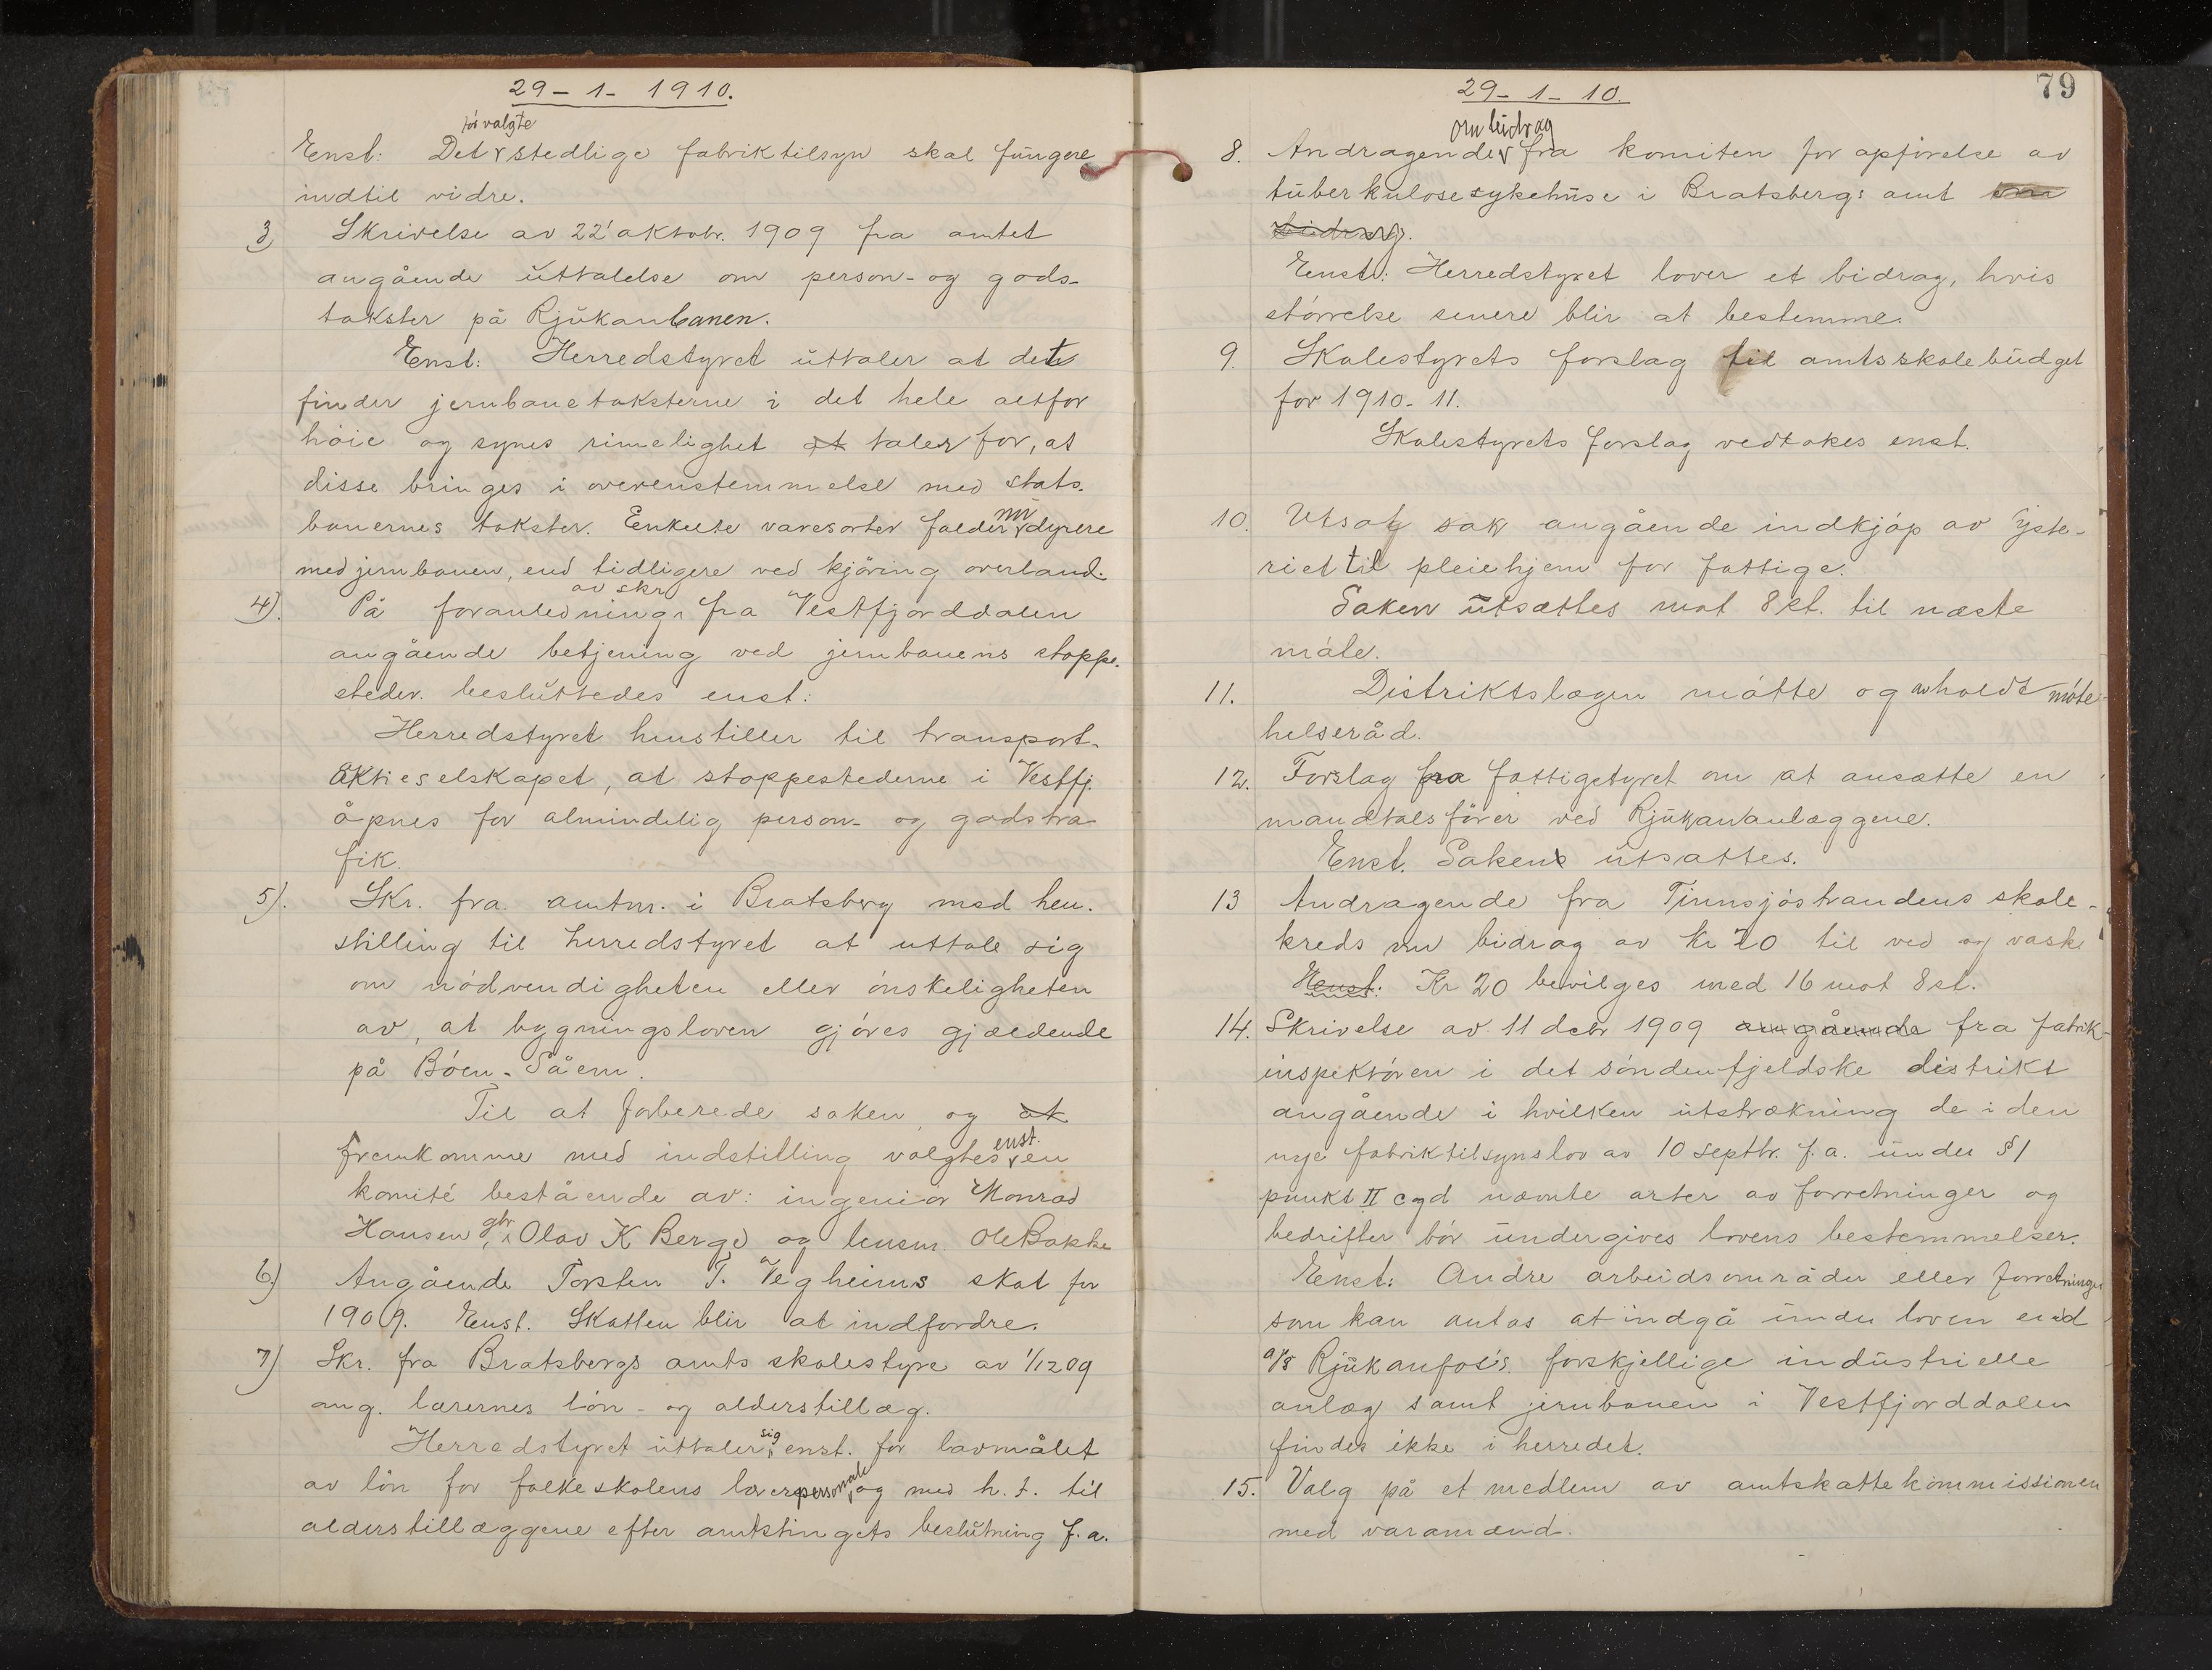 29-1-1910.
før valgte
Enst: Det stedlige fabriktilsyn skal fungere
indtil vidre.
3) Skrivelse av 22' oktobr. 1909 fra amtet
angående uttalelse om person- og gods-
takster på Rjukanbanen.
Enst: Herredstyret uttaler at det
finder jernbanetaksterne i det hele altfor
høie og synes rimelighet at taler for, at
disse bringes i overenstemmelse med stats-
banernes takster. Enkelte varesorter falder nu dyrere
med jernbanen, end tidligere ved kjøring overland.
av skr.
4). På foranledning fra Vestfjorddalen
angående betjening ved jernbanens stoppe-
steder besluttedes enst:
Herredstyret henstiller til transport-
aktieselskapet, at stoppestederne i Vestfj.
åpnes for almindelig person- og godstra
fik.
5). Skr. fra amtm. i Bratsberg med hen-
stilling til herredstyret at uttale sig
om nødvendigheten eller ønskeligheten
av, at bygningsloven gjøres gjældende
på Bøen-Såem.
Til at forberede saken og at
fremkomme med indstilling valgtes enst. en
komité bestående av: ingeniør Monrad
Hansen, gbr. Olav K Berge og lensm. Ole Bakke
6) Angående Torsten T. Vegheims skat for
1909. Enst. Skatten blir at indfordre.
7) Skr. fra Bratsbergs amts skolestyre av 1/12 09
ang. lærernes løn- og alderstillæg.
Herredstyret uttaler sig enst. for lavmålet
av løn for folkeskolens lærerpersonale og med h. t. til
alderstillæggene efter amtstingets beslutning f. a.
29-1-10.
79
om bidrag
8. Andragende fra komiten for opførelse av
tuberkulosesykehuse i Bratsbergs amt om
bidrag.
Enst: Herredstyret lover et bidrag, hvis
størrelse senere blir at bestemme.
9. Skolestyrets forslag til amtsskolebudget
for 1910-11.
Skolestyrets forslag vedtokes enst.
10. Utsat sak angående indkjøp av yste-
riet til pleiehjem for fattige.
Saken utsættes mot 8 st. til næste
møte.
11. Distriktslægen møtte og avholdt møte
helseråd.
12. Forslag fra fattigstyret om at ansætte en
mandtalsfører ved Rjukananlæggene.
Enst. Saken utsattes.
13 Andragende fra Tinnsjøstrandens skole-
kreds om bidrag av kr 20 til ved og vask
Enst: Kr 20 bevilges med 16 mot 8 st.
14. Skrivelse av 11 debr 1909 angående fra fabrik-
inspektøren i det søndenfjeldske distrikt
angående i hvilken utstrækning de i den
nye fabriktilsynslov av 10 septbr. f. a. under § 1
punkt II cgd nævnte arter av forretninger og
bedrifter bør undergives lovens bestemmelser.
Enst: Andre arbeidsområder eller forretninger
som kan antas at indgå under loven end
a/s Rjukanfos's forskjellige industrielle
anlæg samt jernbanen i Vestfjorddalen
findes ikke i herredet.
15. Valg på et medlem av amtskattekommissionen
med varamænd.